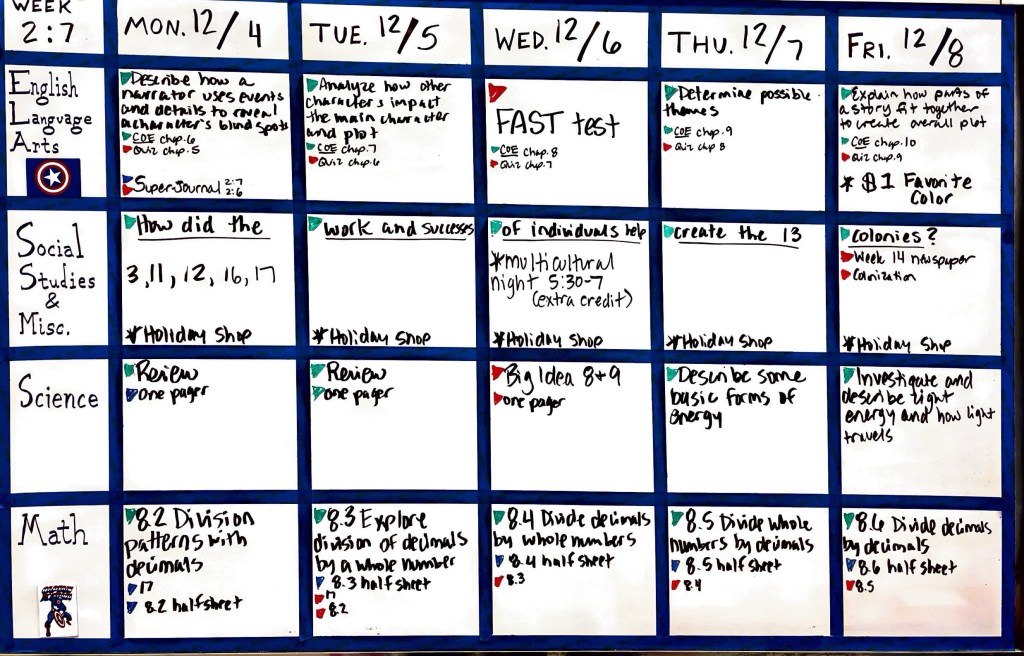 WEEK
2:7
MON. 12/4
TUE. 12/5
WED. 12/6
THU. 12/7
FRI. 12/8
English
Language
Arts
Describe how a
narrator uses events
and details to reveal
a character's blind spots
COE chap. 6
Quiz chp. 5
Super Journal 2:7
2:6
Analyze how other
characters impact
the main character
and plot
COE chap. 7
Quiz chp. 6
FAST test
COE chap. 8
Quiz chap. 7
Determine possible
themes
COE chap. 9
Quiz chp 8
Explain how parts of
a story fit together
to create overall plot
COE chap. 10
Quiz chp. 9
* $1 Favorite
Color
Social
Studies
&
Misc.
How did the
3, 11, 12, 16, 17
*Holiday Shop
work and successes
*Holiday Shop
of individuals help
*multicultural
night 5:30-7
(extra credit)
*Holiday Shop
create the 13
*Holiday Shop
colonies?
Week 14 newspaper
Colonization
*Holiday Shop
Science
Review
One pager
Review
one pager
Big Idea 8+9
one pager
Describe some
basic forms of
energy
Investigate and
describe light
energy and how light
travels
Math
8.2 Division
patterns with
decimals
17
8.2 half sheet
8.3 Explore
division of decimals
by a whole number
8.3 half sheet
17
8.2
8.4 Divide decimals
by whole numbers
8.4 half sheet
8.3
8.5 Divide whole
numbers by decimals
8.5 half sheet
8.4
8.6 Divide decimals
by decimals
8.6 half sheet
8.5